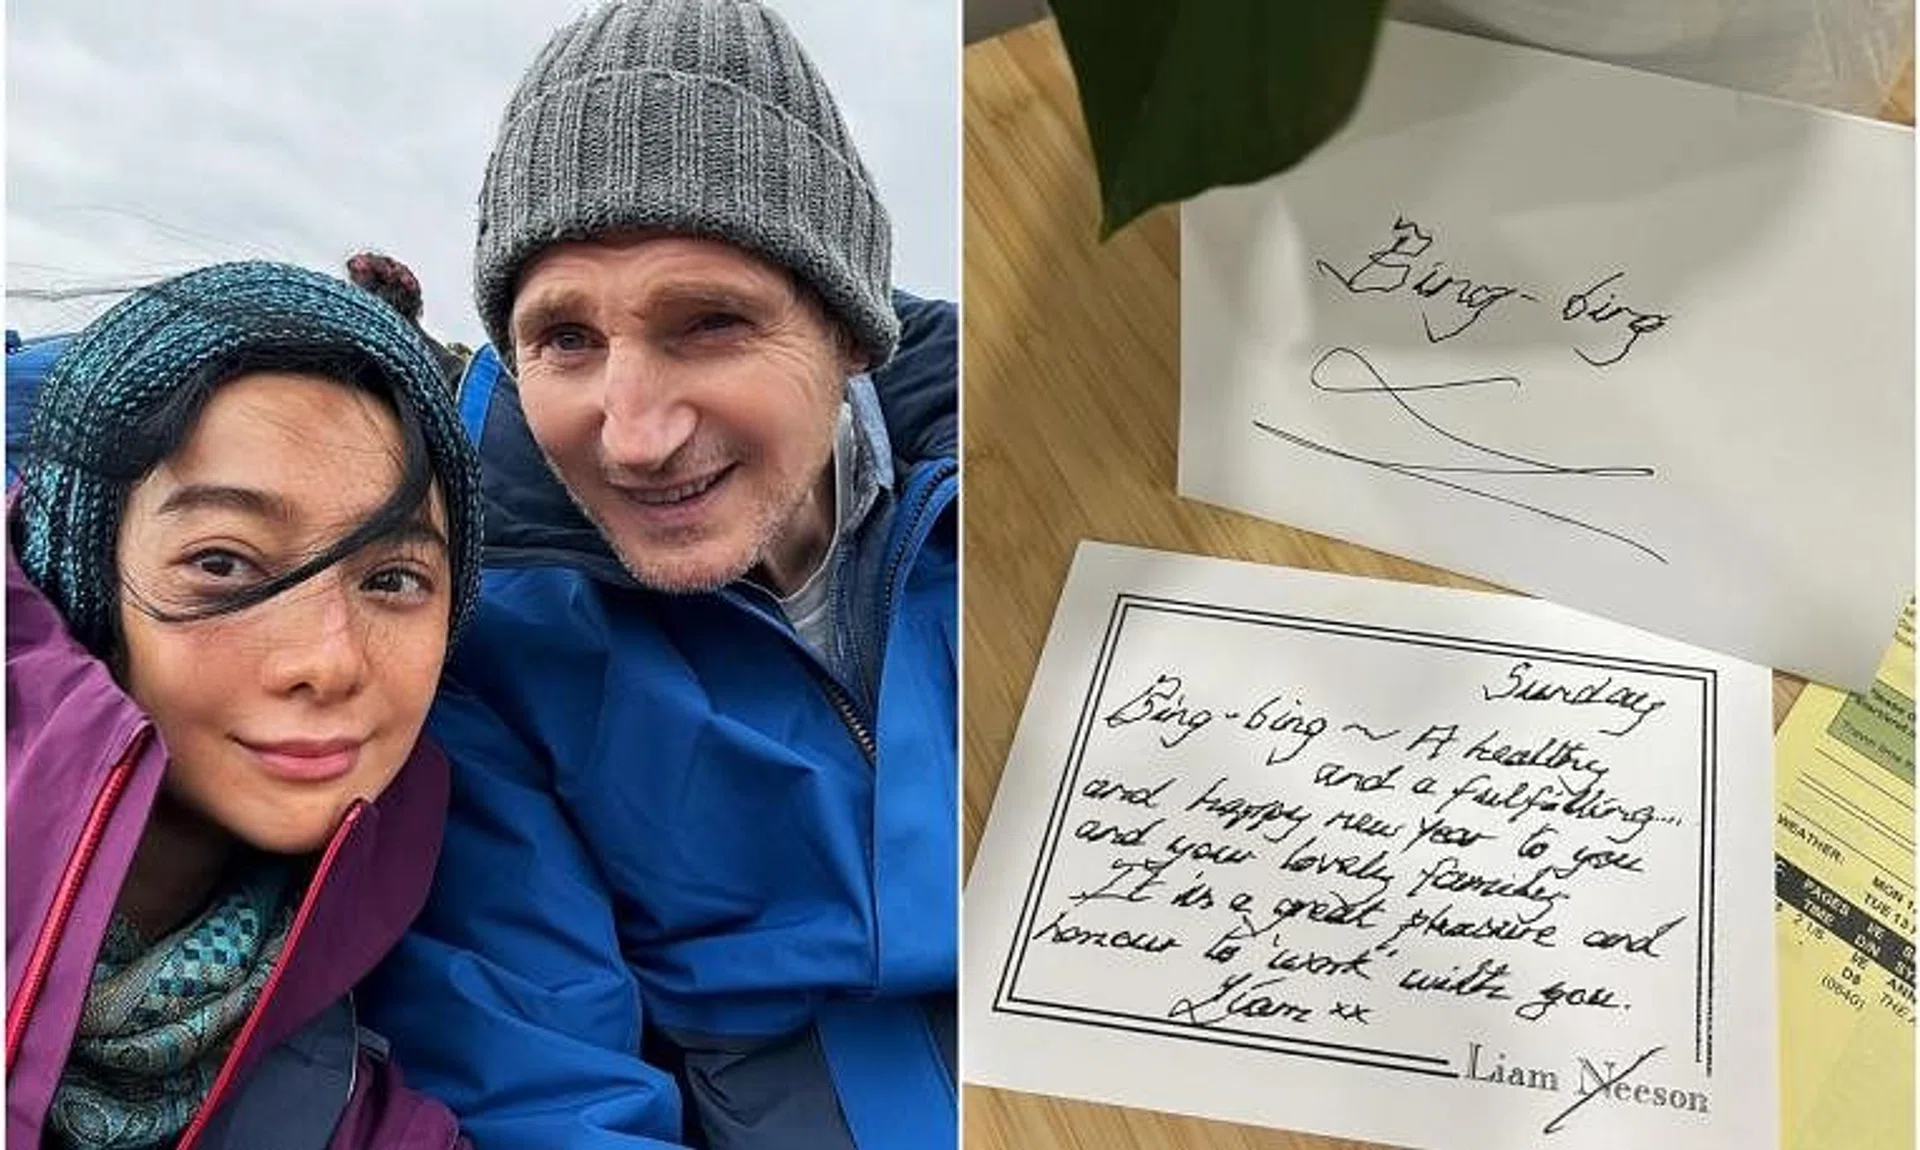 Bing-bing
Sunday
Bing-bing ~ A healthy
and a fulfilling....
and happy new Year to you
and your lovely family.
It is a great pleasure and
honour to 'work' with you.
Liam xx
Liam Neeson
WEATHER:
MON 1
TUE 13
PAGES
TIME
2 1/8
D/N
D8
(0640)
THE